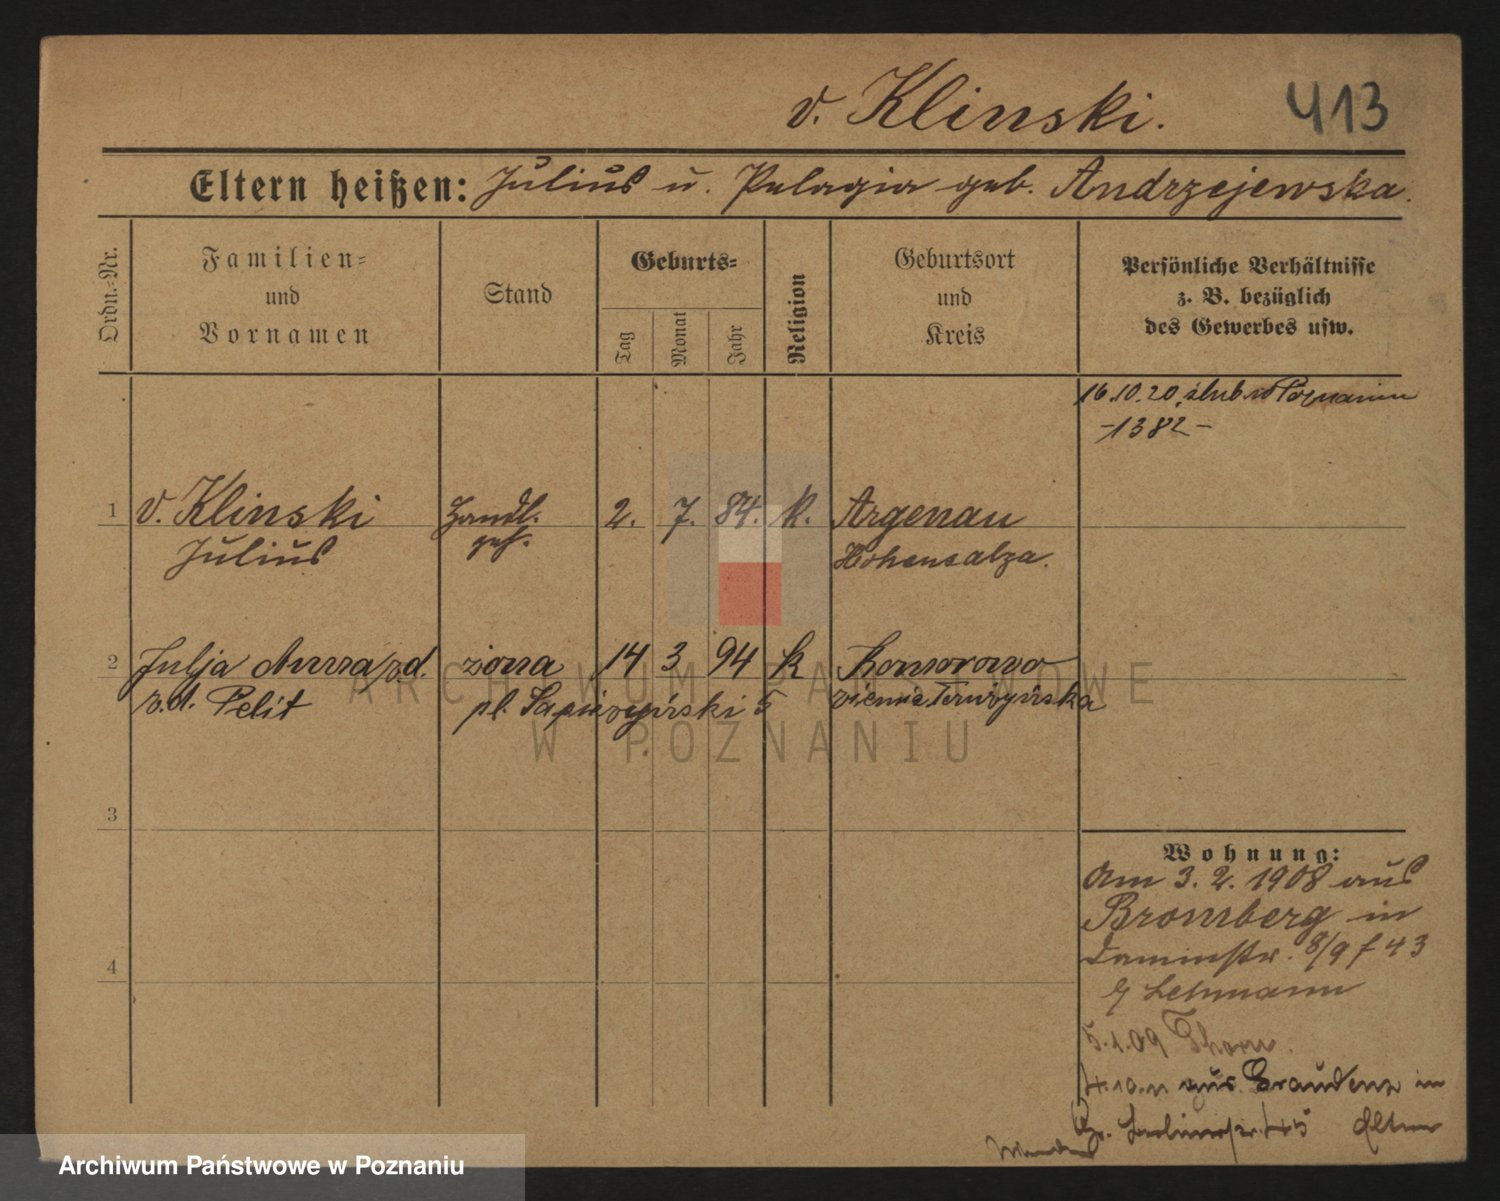 v. Klinski. 413
Eltern heißen: Julius u. Pelagia geb. Andrzejewska.
Ordn.=Nr.
Familien=
und
Vornamen
Stand
Geburts=
Tag
Monat
Jahr
Religion
Geburtsort
und
Kreis
Persönliche Verhältnisse
z. B. bezüglich
des Gewerbes usw.
16.10.20. ślub w Poznaniu
-1382-
1 v. Klinski Handl. 2. 7. 84. k. Argenau
Julius geh. Hohensalza.
2 Julja Anna z d. żona 14 3 94 k Komorowo
z d. Pelit pl. Sapieżyński 5 ziemia
3
4
Wohnung:
Am 3. 2. 1908 aus
Bromberg in
8/9 f 43
b/ Lehmann
5.1.09 Thorn.
4.10.11 aus Graudenz in
Eltern
ARCHIWUM PAŃSTWOWE
W POZNANIU
Archiwum Państwowe w Poznaniu